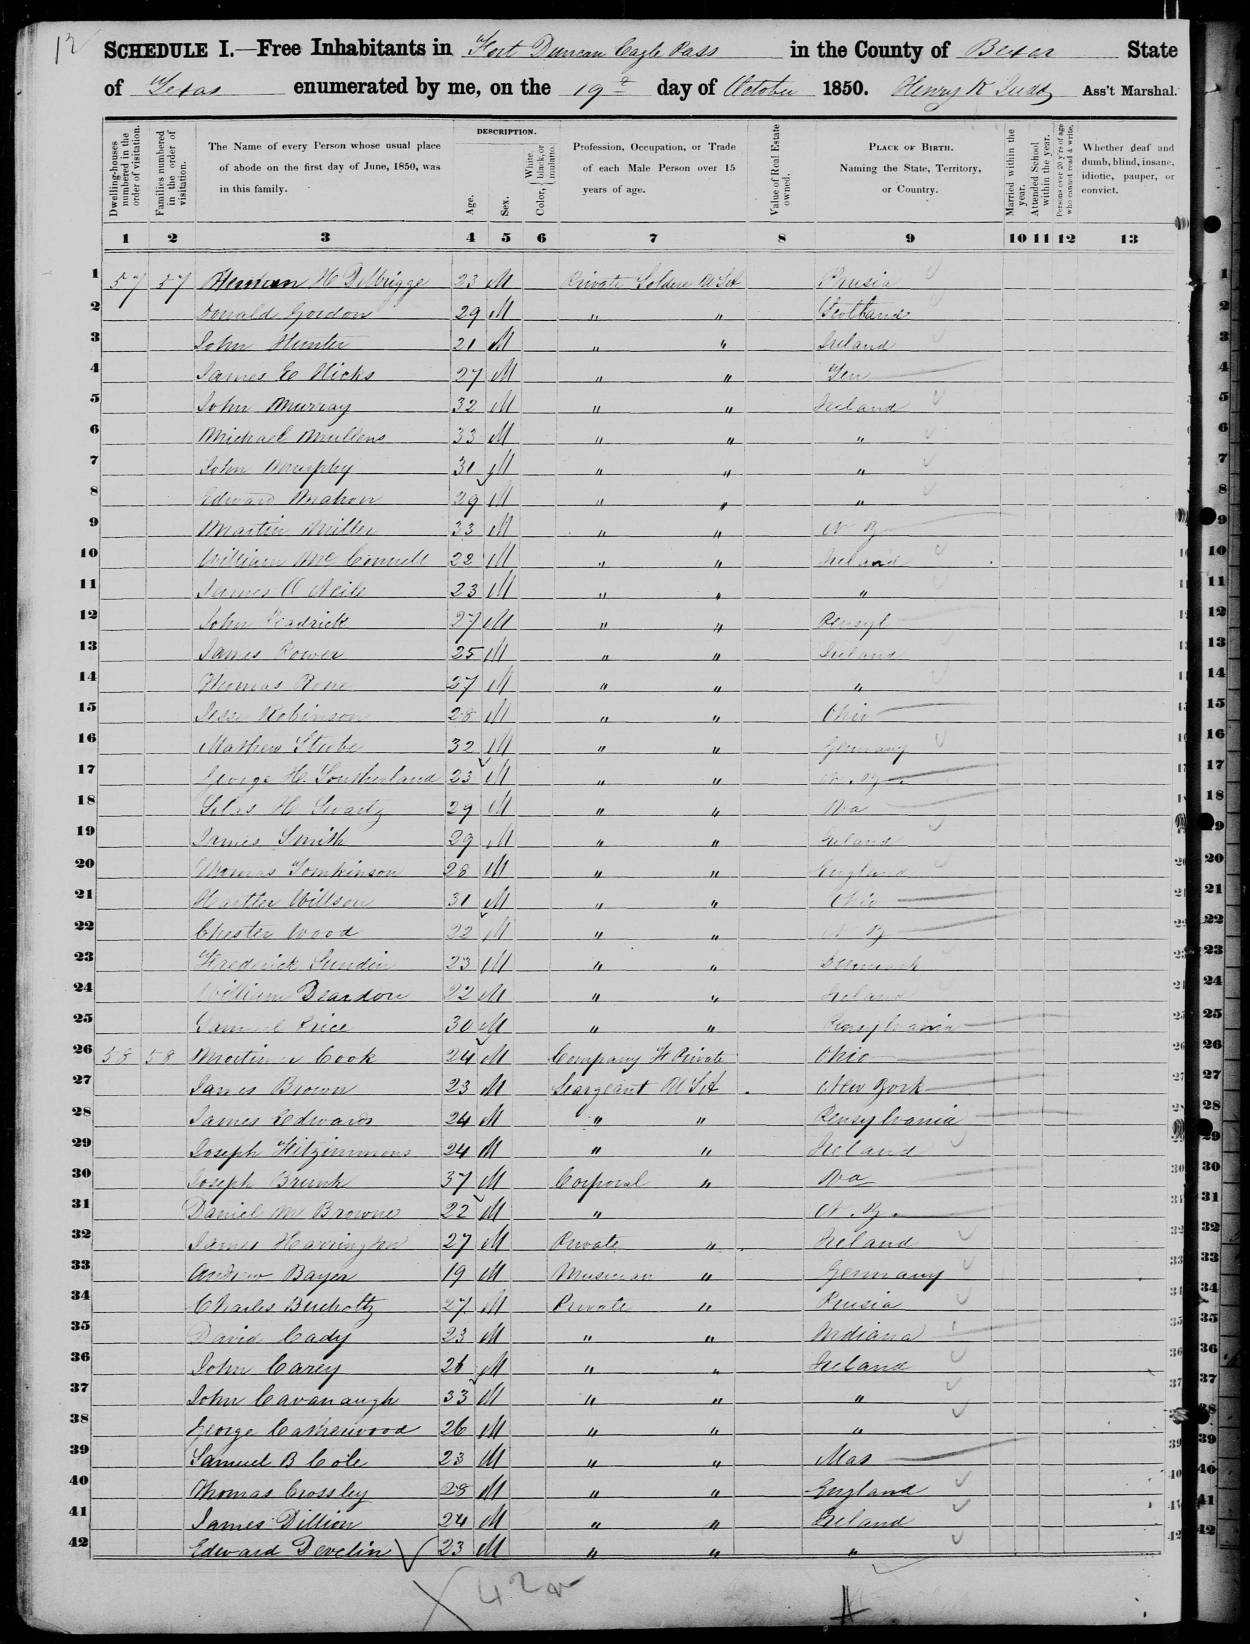 12
SCHEDULE I.—Free Inhabitants in Fort Duncan Eagle Pass in the County of Bexar State
of Texas enumerated by me, on the 19th day of October 1850. Henry K Judd Ass't Marshal.
Dwelling-houses numbered in the order of visitation.
Families numbered in the order of visitation.
The Name of every Person whose usual place of abode on the first day of June, 1850, was in this family.
DESCRIPTION.
Age.
Sex.
Color, { White, black, or mulatto.
Profession, Occupation, or Trade of each Male Person over 15 years of age.
Value of Real Estate owned.
PLACE OF BIRTH. Naming the State, Territory, or Country.
Married within the year.
Attended School within the year.
Persons over 20 y'rs of age who cannot read & write.
Whether deaf and dumb, blind, insane, idiotic, pauper, or convict.
1 2 3 4 5 6 7 8 9 10 11 12 13
1 57 57 H 23 M Private Soldier USA Prusia 1
2 Donald Gordon 29 M " " Scotland 2
3 John Hunter 21 M " " Ireland 3
4 James E Hicks 27 M " " Ten 4
5 John Murray 32 M " " Ireland 5
6 Michael Mullens 33 M " " " 6
7 John Murphy 31 M " " " 7
8 Edward Mahon 29 M " " " 8
9 Martin Miller 33 M " " N Y 9
10 William Mc Connell 22 M " " Ireland 10
11 James O Neile 23 M " " " 11
12 John 27 M " " Pensyl 12
13 James Power 25 M " " Ireland 13
14 Thomas 27 M " " " 14
15 Jesse Robinson 28 M " " Ohio 15
16 Mathew Stube 32 M " " Germany 16
17 George H. Southerland 23 M " " N. Y. 17
18 Silas H Swartz 29 M " " Va 18
19 James Smith 29 M " " Ireland 19
20 Thomas Tomkinson 28 M " " England 20
21 Willson 31 M " " Ohio 21
22 Chester Wood 22 M " " N Y 22
23 Frederick 23 M " " Denmark 23
24 William Deardon 22 M " " Ireland 24
25 Samuel Price 30 M " " Pensylvania 25
26 58 58 Cook 24 M Company F Private Ohio 26
27 James Brown 23 M Seargeant USA New York 27
28 James Edwards 24 M " " Pensylvania 28
29 Joseph Fitzimmons 24 M " " Ireland 29
30 Joseph Brunk 37 M Corporal " Va 30
31 Daniel M Browne 22 M " N. Y. 31
32 James Harrington 27 M Private " Ireland 32
33 Andrew Bayer 19 M Musician " Germany 33
34 Charles Bucholtz 27 M Private " Prusia 34
35 David Cady 23 M " " Indiana 35
36 John Carey 26 M " " Ireland 36
37 John Cavanaugh 33 M " " " 37
38 George Casherwood 26 M " " " 38
39 Samuel B Cole 23 M " " Mas 39
40 Thomas Crossley 28 M " " England 40
41 James Dillion 24 M " " Ireland 41
42 Edward Develin 23 M " " " 42
42